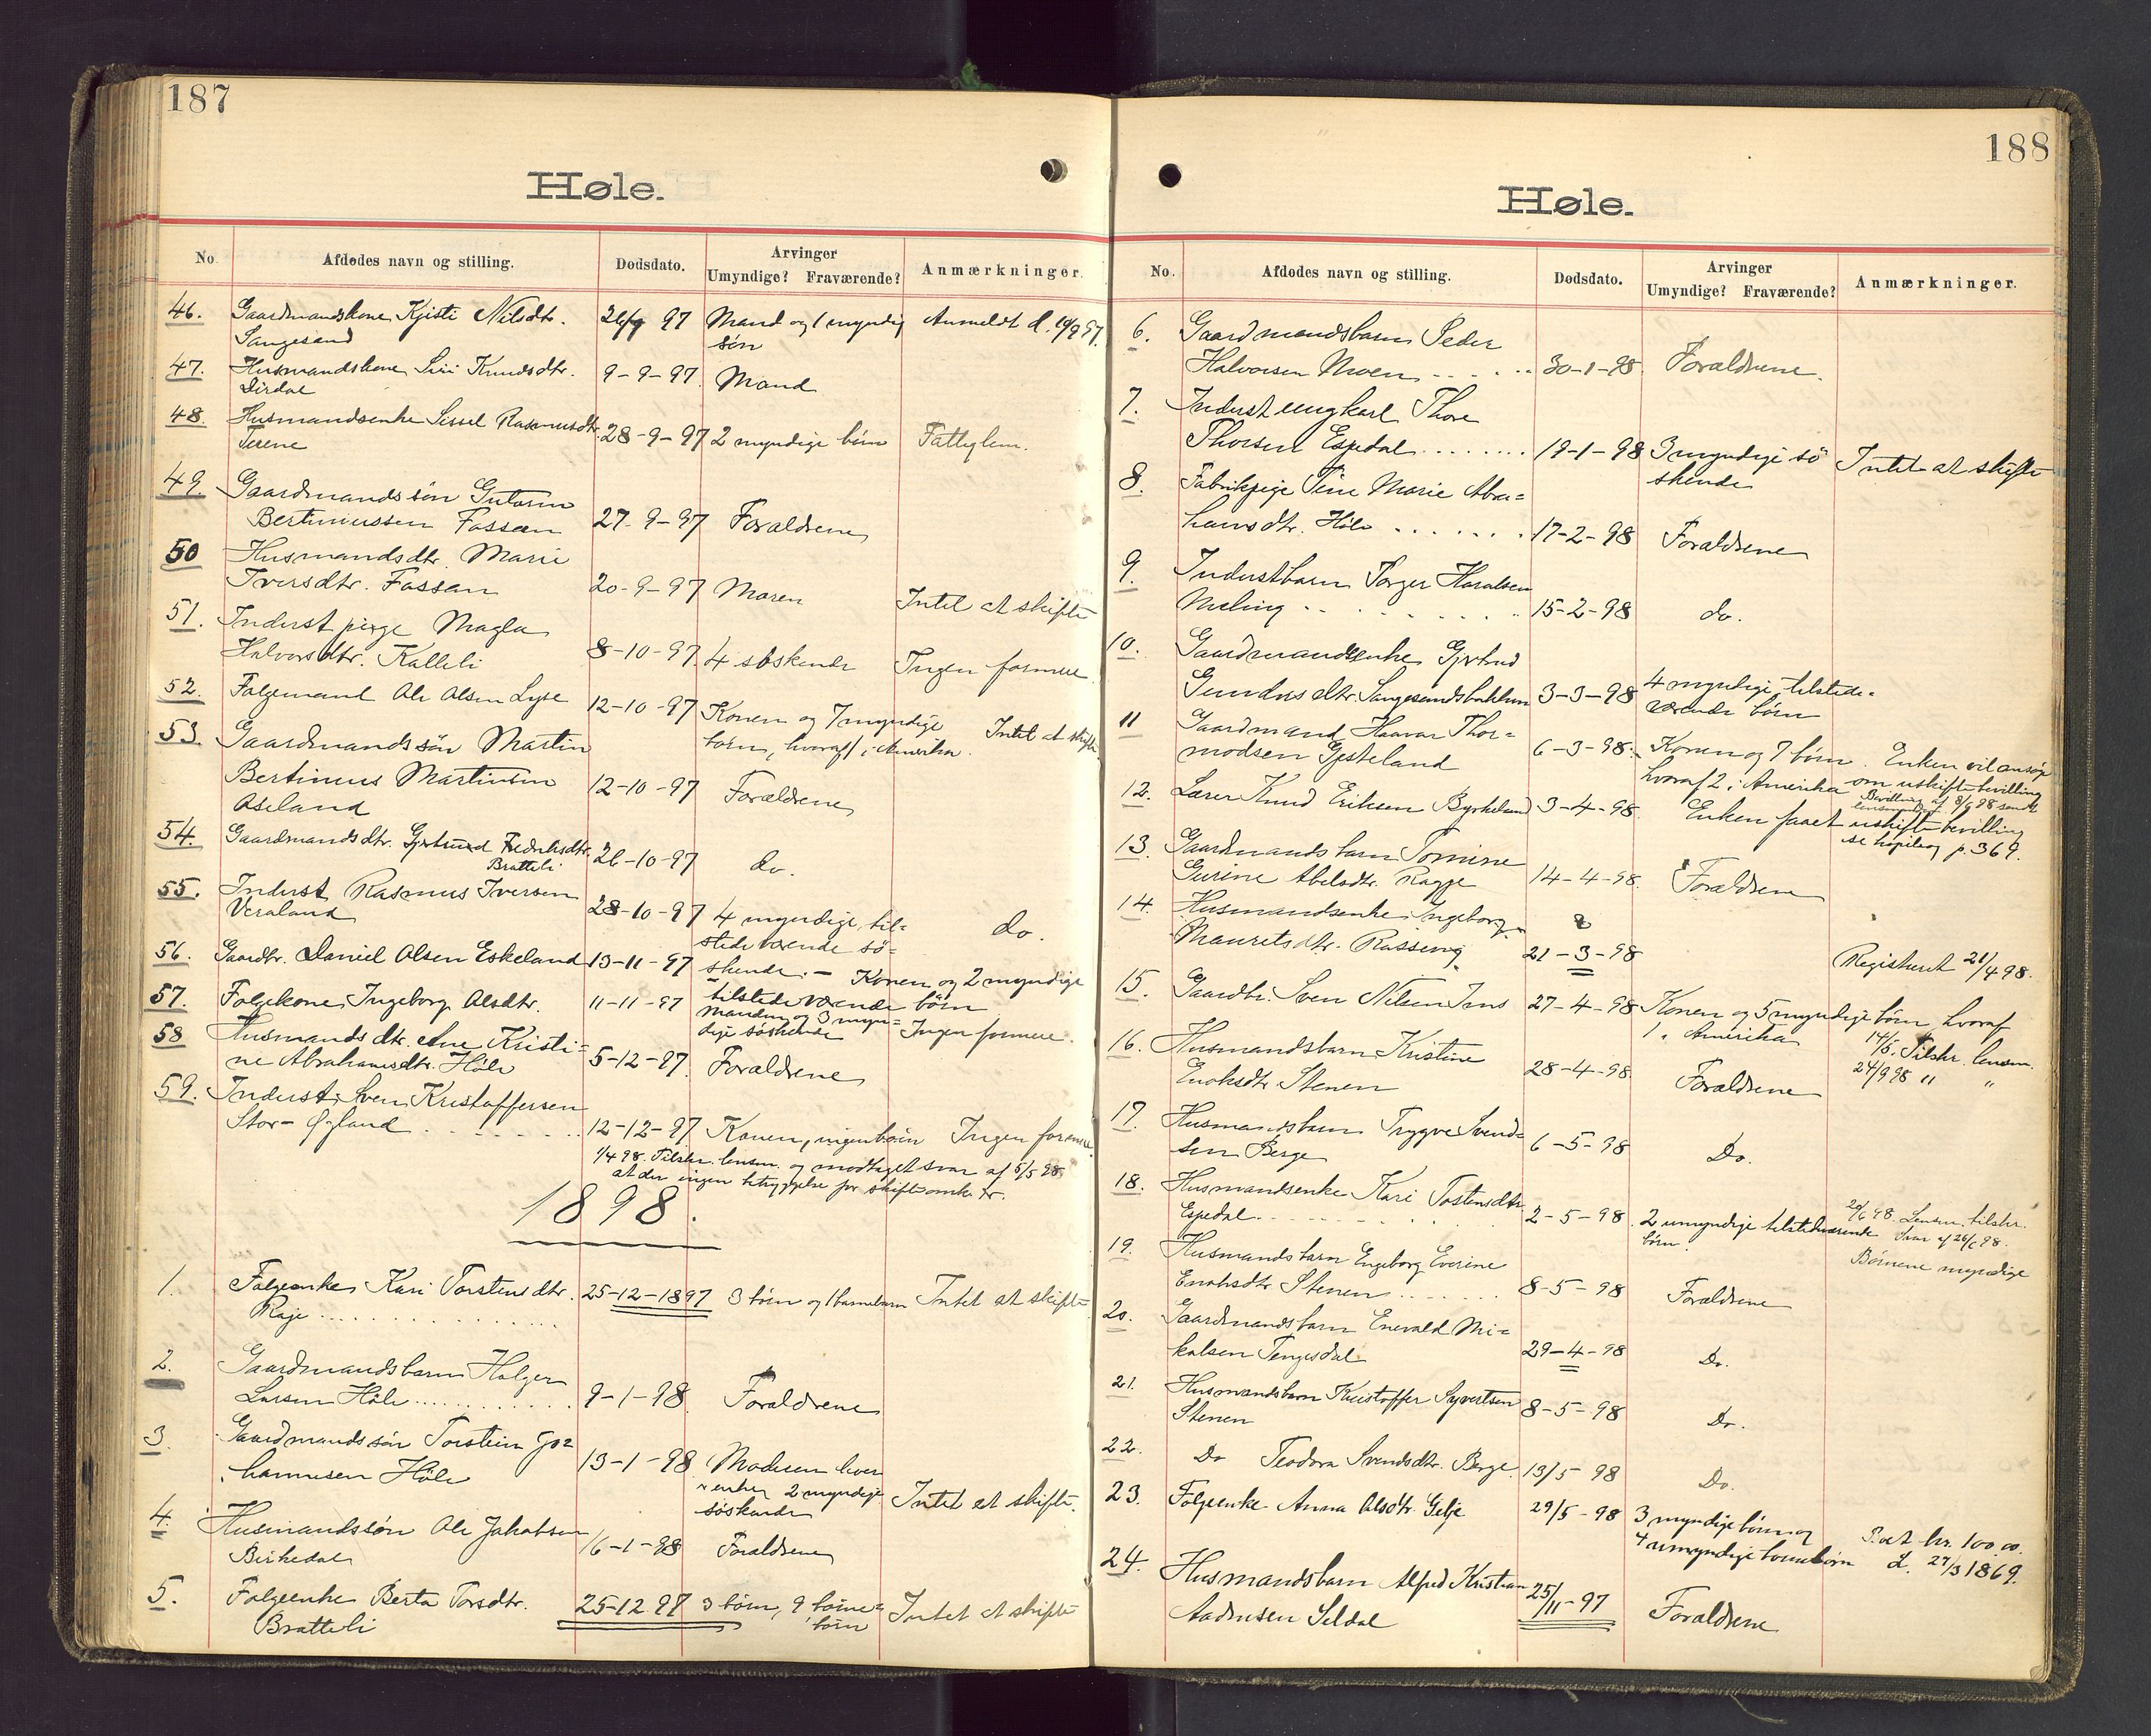 187
Høle.
No.
Afdødes navn og stilling.
Dødsdato.
Arvinger
Umyndige? Fraværende?
Anmærkninger.
46. Gaardmandskone Kjisti Nilsdtr. 97 Mand og 1 myndig Anmeldt d. 14/9 97.
Sangesand søn
47. Husmandskone Siri Knudsdtr. 9-9-97 Mand
Dirdal
48. Husmandsenke Sissel Rasmusdtr. 28-9-97 2 myndige børn Fattiglem.
49. Gaardmandssøn Gutorm
Bertinussen Fossan 27-9-97 Forældrene
50 Husmandsdtr. Marie
Iversdtr. Fossan 20-9-97 Moren Intet at skifte
51. Inderst pige Magla
Halvorsdtr. Kalleli 8-10-97 4 søskende Ingen formue
52. Folgemand Ole Olsen Lyse 12-10-97 Konen og 7 myndige Intet at skifte
børn, hvoraf 1 i Amerika.
53. Gaardmandssøn Martin
Bertinius Martinsen 12-10-97 Forældrene
Øseland
54. Gaardmandsdtr. Gjertrud Fredriksdtr. 26-10-97 do.
Bratteli
55. Inderst Rasmus Iversen 28-10-97 4 myndige, til- do.
Veraland stedeværende sø-
56. Gaardbr. Daniel Olsen Eskeland 13-11-97 skende. – Konen og 2 myndige
57. Folgekone Ingeborg Olsdtr. 11-11-97 tilstedeværende børn
manden og 3 myn- Ingen formue.
dige søskende
58 Husmandsdtr. Ane Kristi-
ne Abrahamsdtr. Høle 5-12-97 Forældrene
59. Inderst Sven Kristoffersen
Stor-Øgland 12-12-97 Konen, ingen børn Ingen formue
1/4 98. Tilskr. lensm. og modtaget svar af 5/5 98
at der ingen
1898.
1. Folgeenke Kari Torstensdtr. 25-12-1897 3 børn og 1 barnebarn Intet at skifte
Rage
2. Gaardmandsbarn Holger
Larsen Høle 9-1-98 Forældrene
3. Gaardmandssøn Torstein Jo=
hannesen Høle 13-1-98 Moderen
enke, 2 myndige Intet at skifte.
søskende
4. Husmandssøn Ole Jakobsen
Birkedal 16-1-98 Forældrene
5. Folgeenke Berta Torsdtr. 25-12 97 3 børn, 9 børne= Intet at skifte
Bratteli børn
188
Høle.
No.
Afdødes navn og stilling.
Dødsdato.
Arvinger
Umyndige? Fraværende?
Anmærkninger.
6. Gaardmandsbarn Peder
Halvorsen Moen 30-1-98 Forældrene.
7. Inderst ungkarl Thore
Thorsen Espedal 19-1-98 3 myndige sø Intet at skifte
skende
8. Fabrikpige Tine Marie Abra=
hamsdtr. Høle 17-2-98 Forældrene
9. Inderstbarn Torger Haraldsen
Meling 15-2-98 do.
10. Gaardmandsenke Gjertrud
Gundersdtr. Sangesandsbakken 3-3-98 4 myndige tilstede=
værende børn
11 Gaardmand Haavar Thor=
modsen Gjesteland 6-3-98. Konen og 7 børn. Enken vil ansøge
hvoraf 2 i Amerika om uskiftebevilling
Bevilling af 8/9 98 sendt
lensmanden
12. Lærer Knud Eriksen Byrkeland 3-4-98. Enken faaet uskiftebevilling
se kopibog p. 369.
13. Gaardmandsbarn Tomine
Gurine Abelsdtr. Ragge 14-4-98. Forældrene
14. Husmandsenke Ingeborg
Mauritsdtr. Rossevig 21-3-98 Registreret 21/4 98.
15. Gaardbr. Sven Nilsen Ims 27-4-98 Konen og 5 myndige børn hvoraf
1 i Amerika 14/5. Tilskr. lensm.
24/9 98 " "
16. Husmandsbarn Kristine
Enoksdtr. Stenen 28-4-98. Forældrene
17. Husmandsbarn Trygve Svend=
sen Berge 6-5-98 Do.
18. Husmandsenke Kari Tostensdtr.
Espedal 2-5-98. 2 umyndige tilstedeværende
børn.
20/6 98. Lensm. tilskr.
Svar af 26/6 98.
Børnene myndige
19. Husmandsbarn Engeborg Everine
Enoksdtr. Stenen 8-5-98 Forældrene
20. Gaardmandsbarn Enevald Mi=
kalsen Tengesdal 29-4-98 Do.
21. Husmandsbarn Kristoffer Syvertsen 8-5-98 Do.
Stenen
22. Do Teodora Svendsdtr. Berge 13/5 98 Do.
23. Folgeenke Anna Olsdtr. Gilje 29/5-98 3 myndige børn og
4 umyndige børnebørn
P. at kr. 100.00.
d. 27/3 1869.
24. Husmandsbarn Alfred Kristian 25/11-97 Forældrene
Aadnesen Seldal